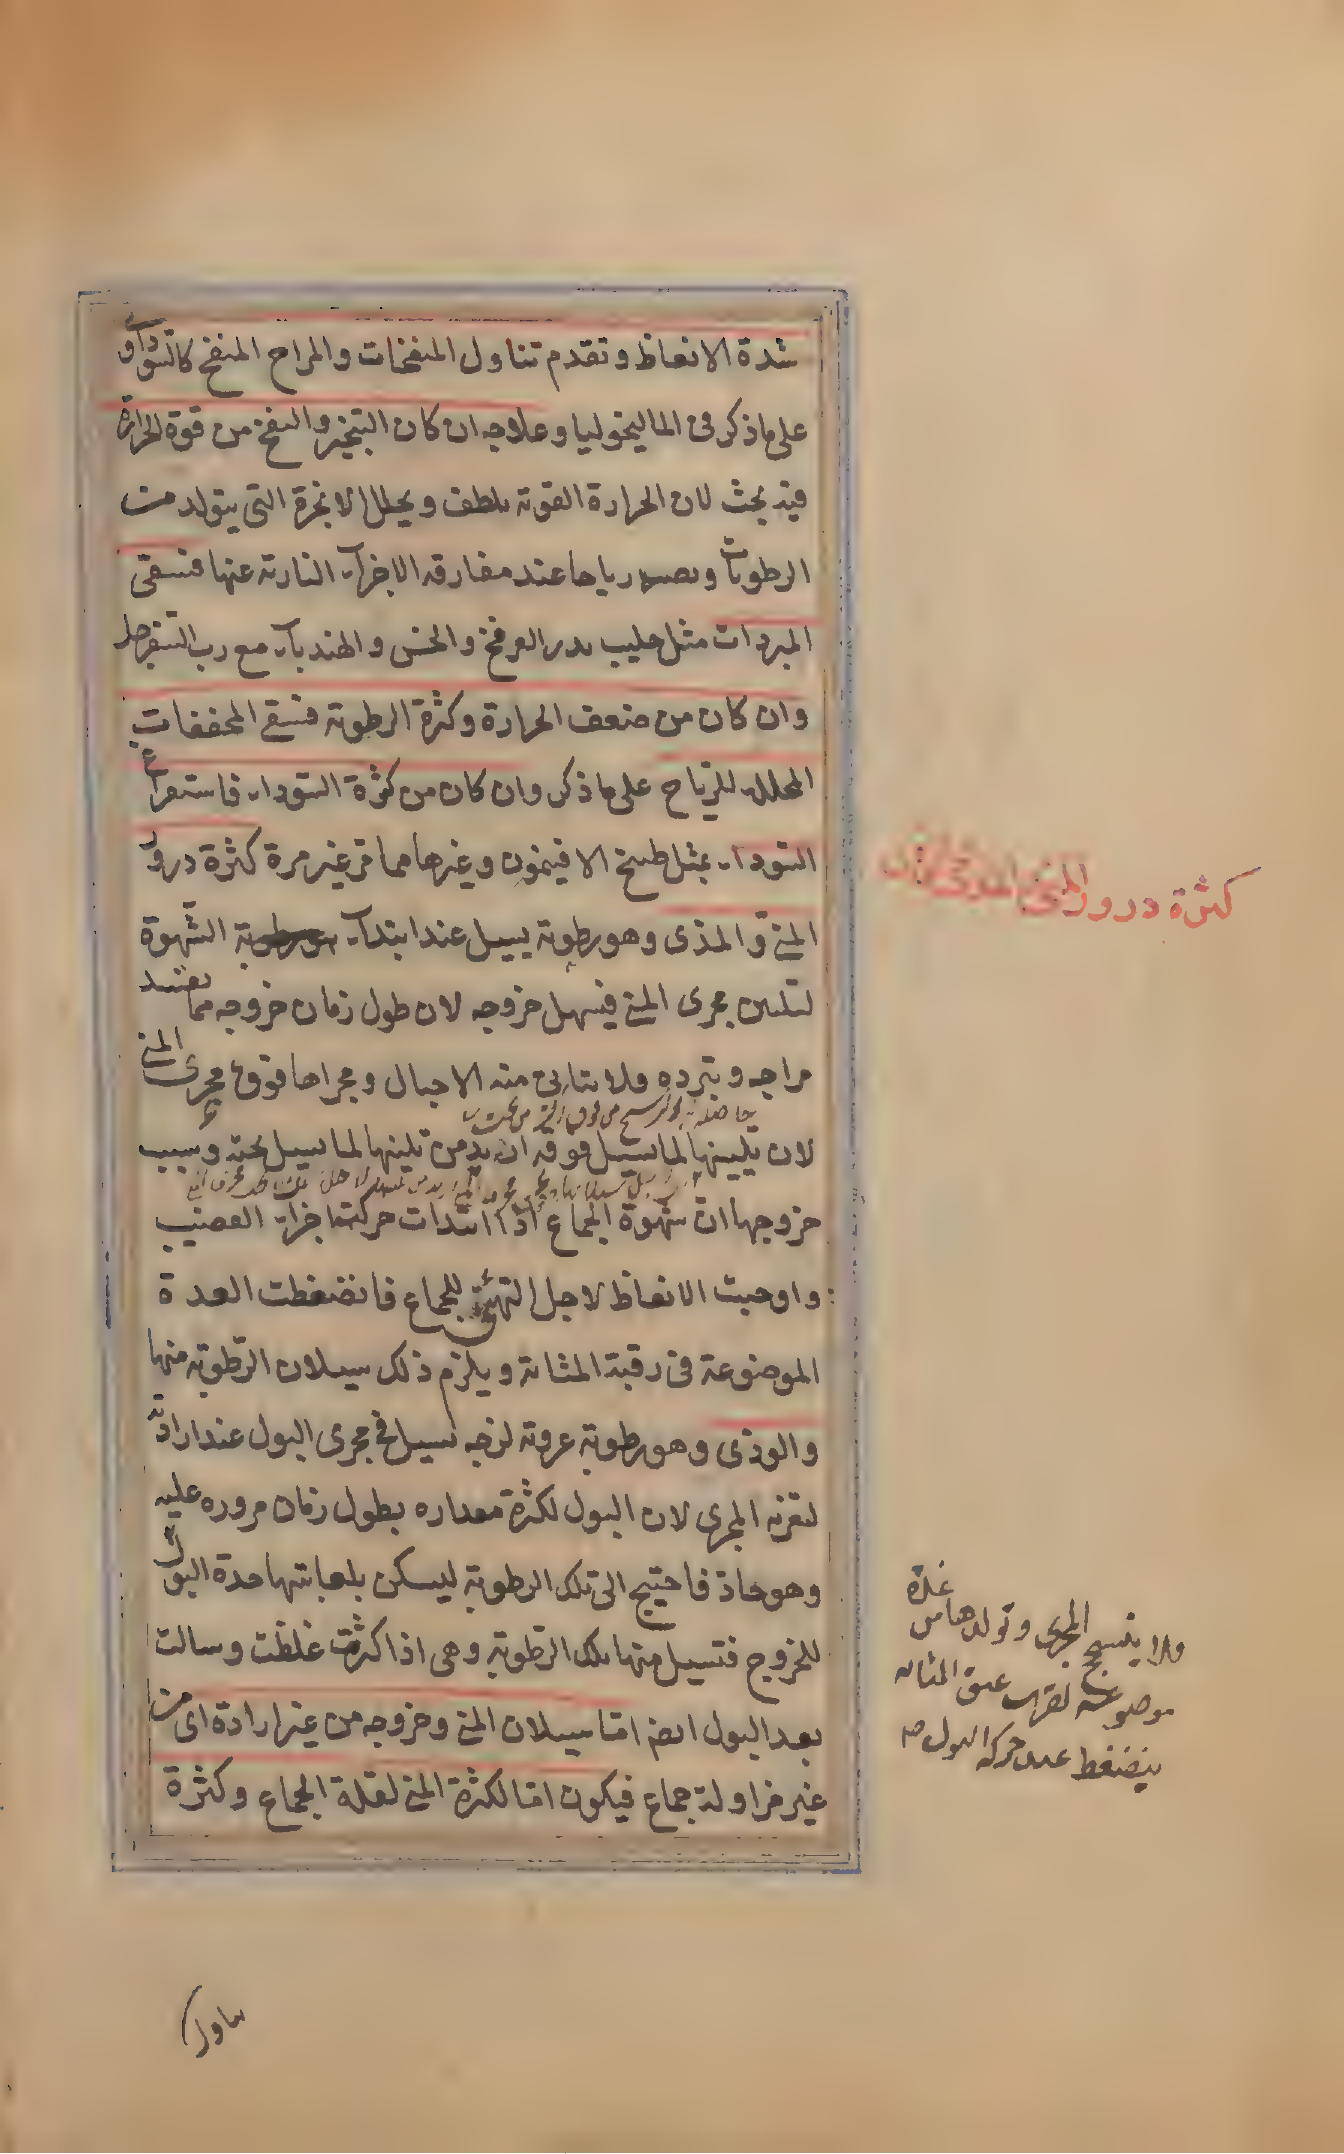 شدة الانعاظ وتقدم تناول المنفخات والمزاج المنفخ كالسوداوى
على ما ذكر فى الماليخوليا وعلاجه ان كان التبخير والنفخ من قوة الحرارة
فيه بحث لان الحرارة القوية يلطف ويحلل الابخرة التى يتولد من
الرطوبات ويصير رياحا عند مفارقه الاجزاء النارية عنها فتسقى
المبردات مثل حليب بذر العرفخ والخس والهندباء مع رب السفرجل
وان كان من ضعف الحرارة وكثرة الرطوبة فتسقى المجففات
المحللة للرياح على ما ذكر وان كان من كثرة السوداء فاستفراغ
السوداء بمثل طبيخ الافيتمون وغيرها مما مر غير مرة كثرة درور
المنى والمذى وهو رطوبة يسيل عند ابتداء الشهوة
لتلين مجرى المنى فيسهل خروجه لان طول زمان خروجه مما يفسد
مزاجه ويبرده فلا يتاتى منه الاحبال ومجراها فوق مجرى المنى
لان تليينها لما يسيل فوقه ان بد من تليينها لما يسيل تحته وسبب
خروجها ان شهوة الجماع اذا ابتدات حركت اجزاء القضيب
واوجبت الانعاظ لاجل التهيئ للجماع فانضغطت الغدة
الموضوعة فى رقبة المثانة ويلزم ذلك سيلان الرطوبة منها
والوذى وهو رطوبة غروية لزجه تسيل فى مجرى البول عند ارادته
لتغرية المجرى لان البول لكثرة مقداره يطول زمان مروره عليه
وهو حاد فاحتيج الى تلك الرطوبة ليسكن بلعابيتها حدة البول
للخروج فتسيل منها تلك الرطوبة وهى اذا كثرت غلظت وسالت
بعد البول ايضا اما سيلان المنى وخروجه من غير ارادة اى من
غير مزاولة جماع فيكون اما لكثرة المنى لقلة الجماع وكثرة
كثرة درور المنى المذى
ولا ينسحج المجرى وتولدها من غدة
موضوعة لقرب عنق المثانه
ينضغط عند حركة البول صه